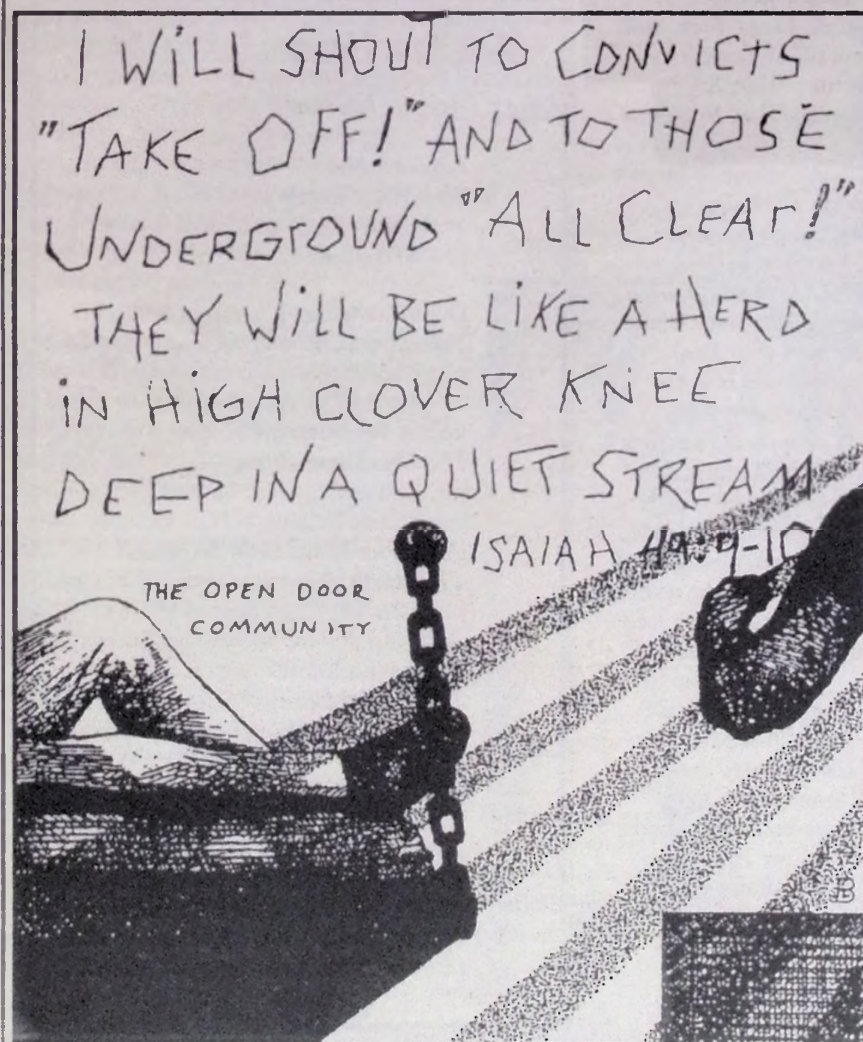 I WiLL SHOUT TO CONVICTS
"TAKE OFF!" AND TO THOSE
UNDERGrOUND "ALL CLEAr!"
THEY WiLL BE LiKE A HERD
iN HiGH CLOVER KNEE
DEEP IN A QUIET STREAM
ISAIAH 49:9-10
THE OPEN DOOR
COMMUNITY
B